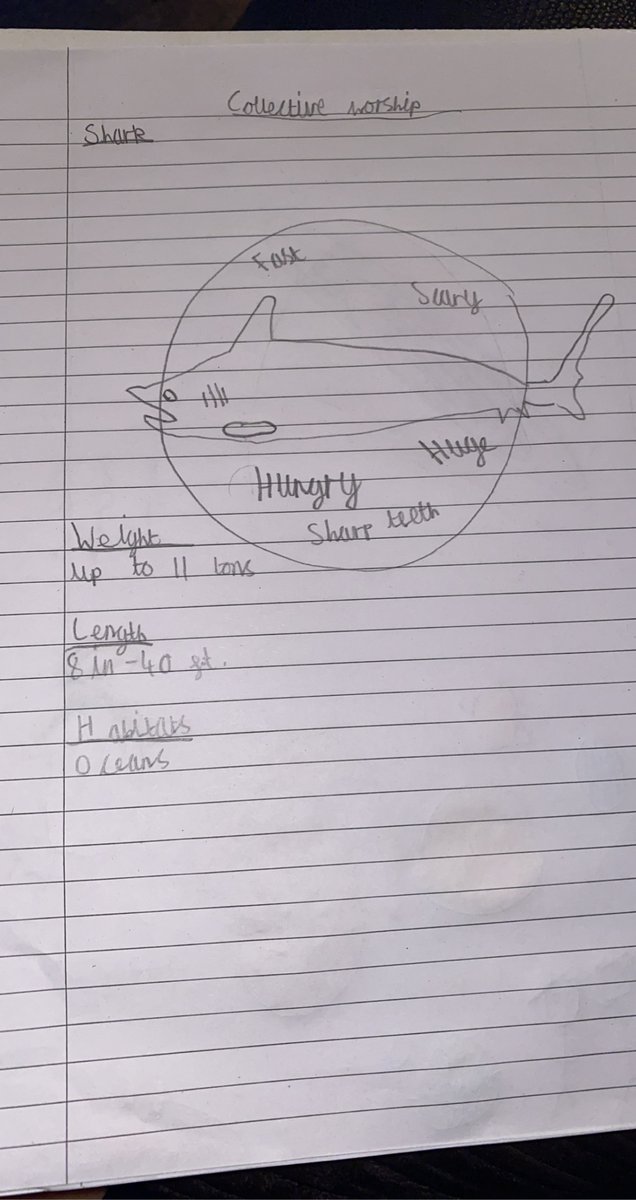 Collective worship
Shark
Fast
Scary
Huge
Hungry
Sharp teeth
Weight
up to 11 tons
Length
8 in - 40 ft.
Habitats
Oceans